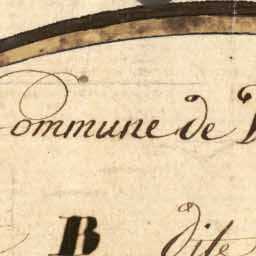 Commune de
B dite